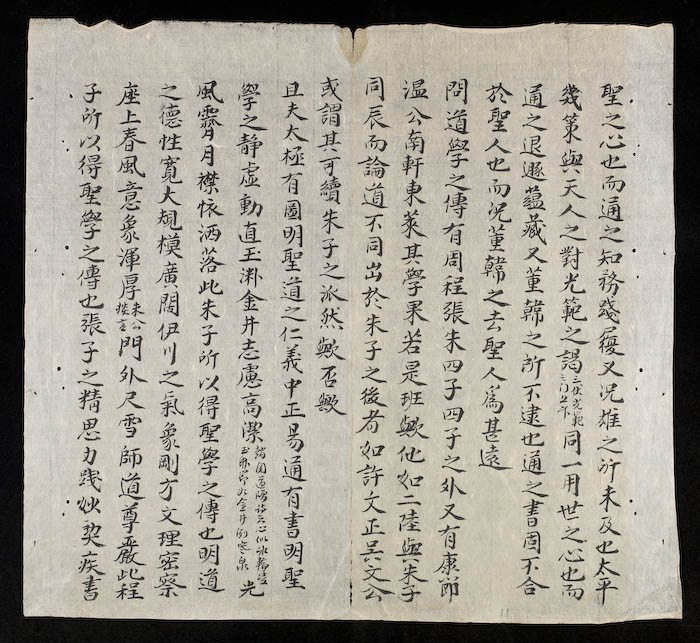 聖之心也而通之知務踐履又況雄之所未及也太平
幾策與天人之對光範之謁三伏光範同一用世之心也而
通之退遯蘊藏又董韓之所不逮也通之書固不合
於聖人也而況董韓之去聖人爲甚遠
問道學之傳有周程張朱四子四子之外又有康節
温公南軒東萊其學果若是班歟他如二陸與朱子
同辰而論道不同出於朱子之後者如許文正吳文公
或謂其可續朱子之派然歟否歟
且夫太極有圖明聖道之仁義中正易通有書明聖
學之静虚動直玉渊金井志慮高潔光
風霽月襟懐洒落此朱子所以得聖學之傳也明道
之德性寬大規模廣闊伊川之氣象剛方文理密察
座上春風意象渾厚朱公掞言門外尺雪師道尊嚴此程
子所以得聖學之傳也張子之精思力踐妙契疾書